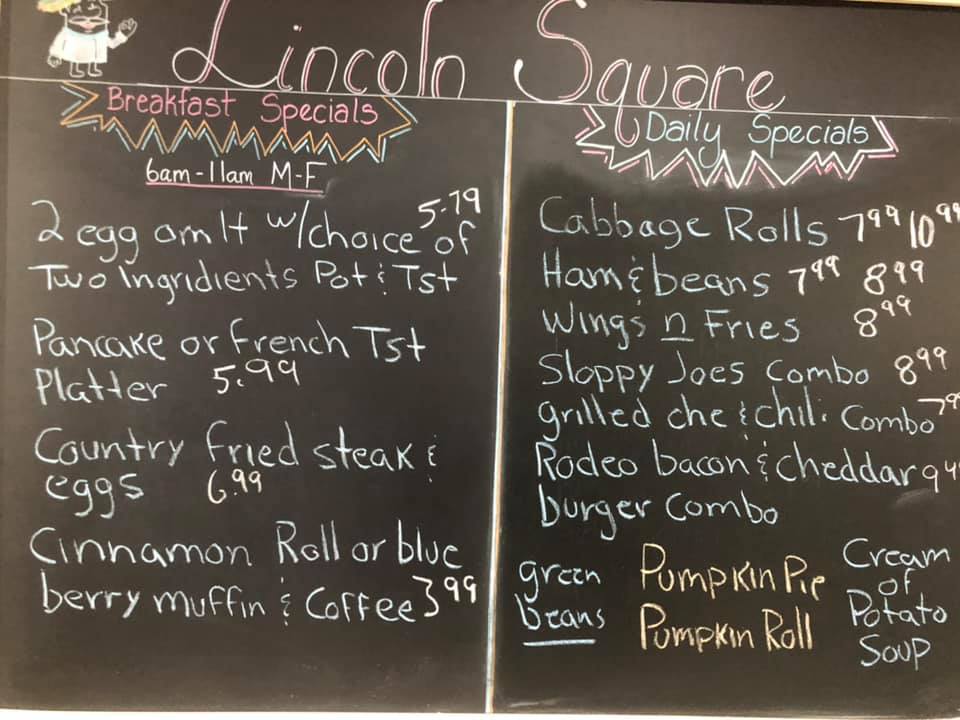 Lincoln Square
Breakfast Specials
6am-11am M-F
2 egg omlt w/choice of 5.79
Two Ingridients Pot & Tst
Pancake or French Tst
Platter 5.99
Country fried steak &
eggs 6.99
Cinnamon Roll or blue
berry muffin & Coffee 3.99
Daily Specials
Cabbage Rolls 7.99 10.99
Ham & beans 7.99 8.99
Wings n Fries 8.99
Sloppy Joes Combo 8.99
grilled che & chili Combo
Rodeo bacon & cheddar
burger Combo
green
beans
Pumpkin Pie
Pumpkin Roll
Cream
of
Potato
Soup